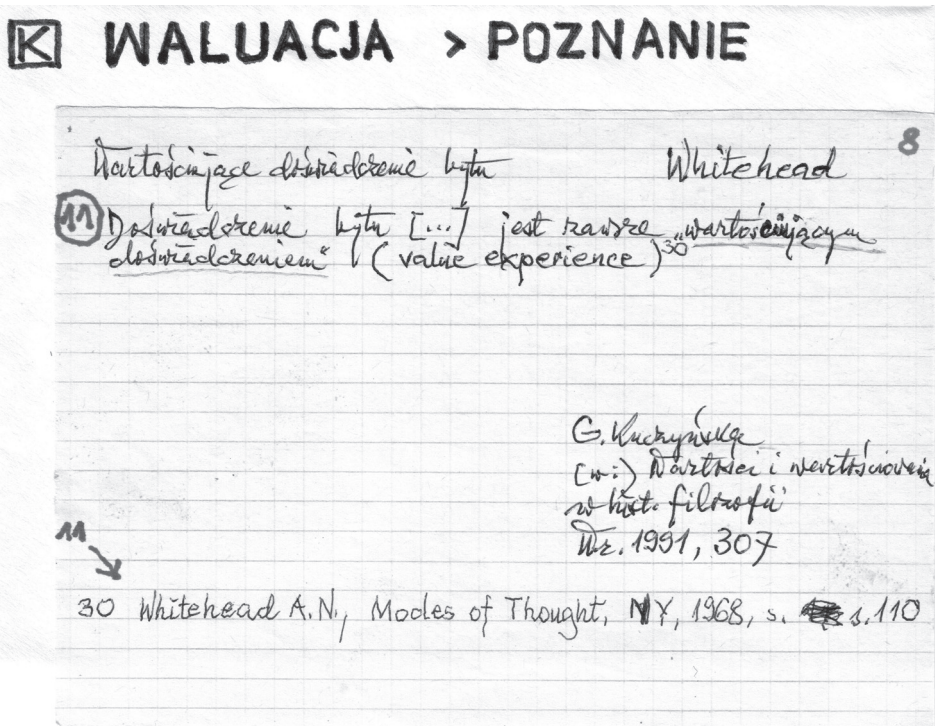 K WALUACJA > POZNANIE
8
Wartościujące doświadczenie bytu Whitehead
11 Doświadczenie bytu [...] jest zawsze „wartościującym
doświadczeniem" (value experience)30
G. Kuczyńska
(w:) Wartości i wartościowania
w hist. filozofii
Wr. 1991, 307
11
30 Whitehead A.N., Modes of Thought, NY, 1968, s. s. 110